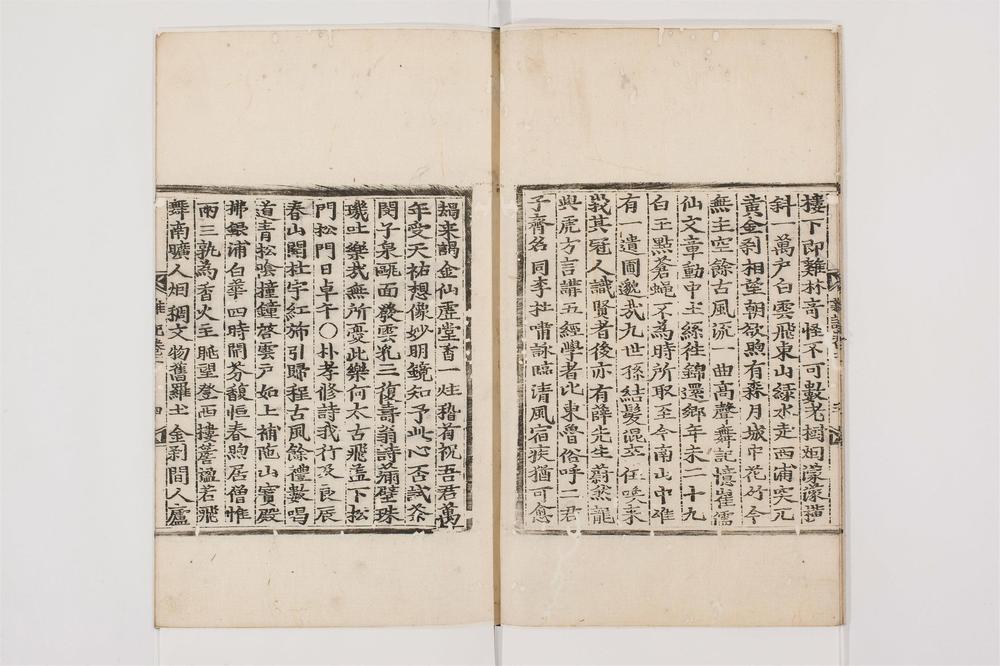 樓下即雞林奇怪不可數老樹烟濛濛橫
斜一萬户白雲飛東山綠水走西浦突兀
黃金刹相望朝欲煦有森月城中花竹今
無主空餘古風流一曲高聲舞記憶崔儒
仙文章動中土綵往錦還鄉年未二十九
白玉點蒼蝿不爲時所取至今南山中唯
有一遺圃邈哉九世孫結髮混空任喚來
峩其冠人識賢者後亦有薛先生蔚然龍
與虎方言講五經學者比東魯俗呼二君
子齊名同李杜嘯詠臨清風宿疾猶可愈
朅來謁金仙虛堂香一炷稽首祝吾君萬
年受天祐想像妙明鏡知予此心否試茶
閔子泉甌面發雲乳三復壽翁詩滿壁珠
璣吐樂哉無所憂此樂何太古飛盖下松
門松門日卓午〇朴孝修詩我行及良辰
春山聞杜宇紅斾引歸程古風餘禮數喝
道青松喰撞鐘啓雲户如上補陁山寶殿
拂銀浦白華四時開芬馥恒春煦居僧惟
兩三孰爲香火主眺望登西樓簷楹若飛
舞南曠人烟稠文物舊羅土金刹間人廬
雜記卷二
四